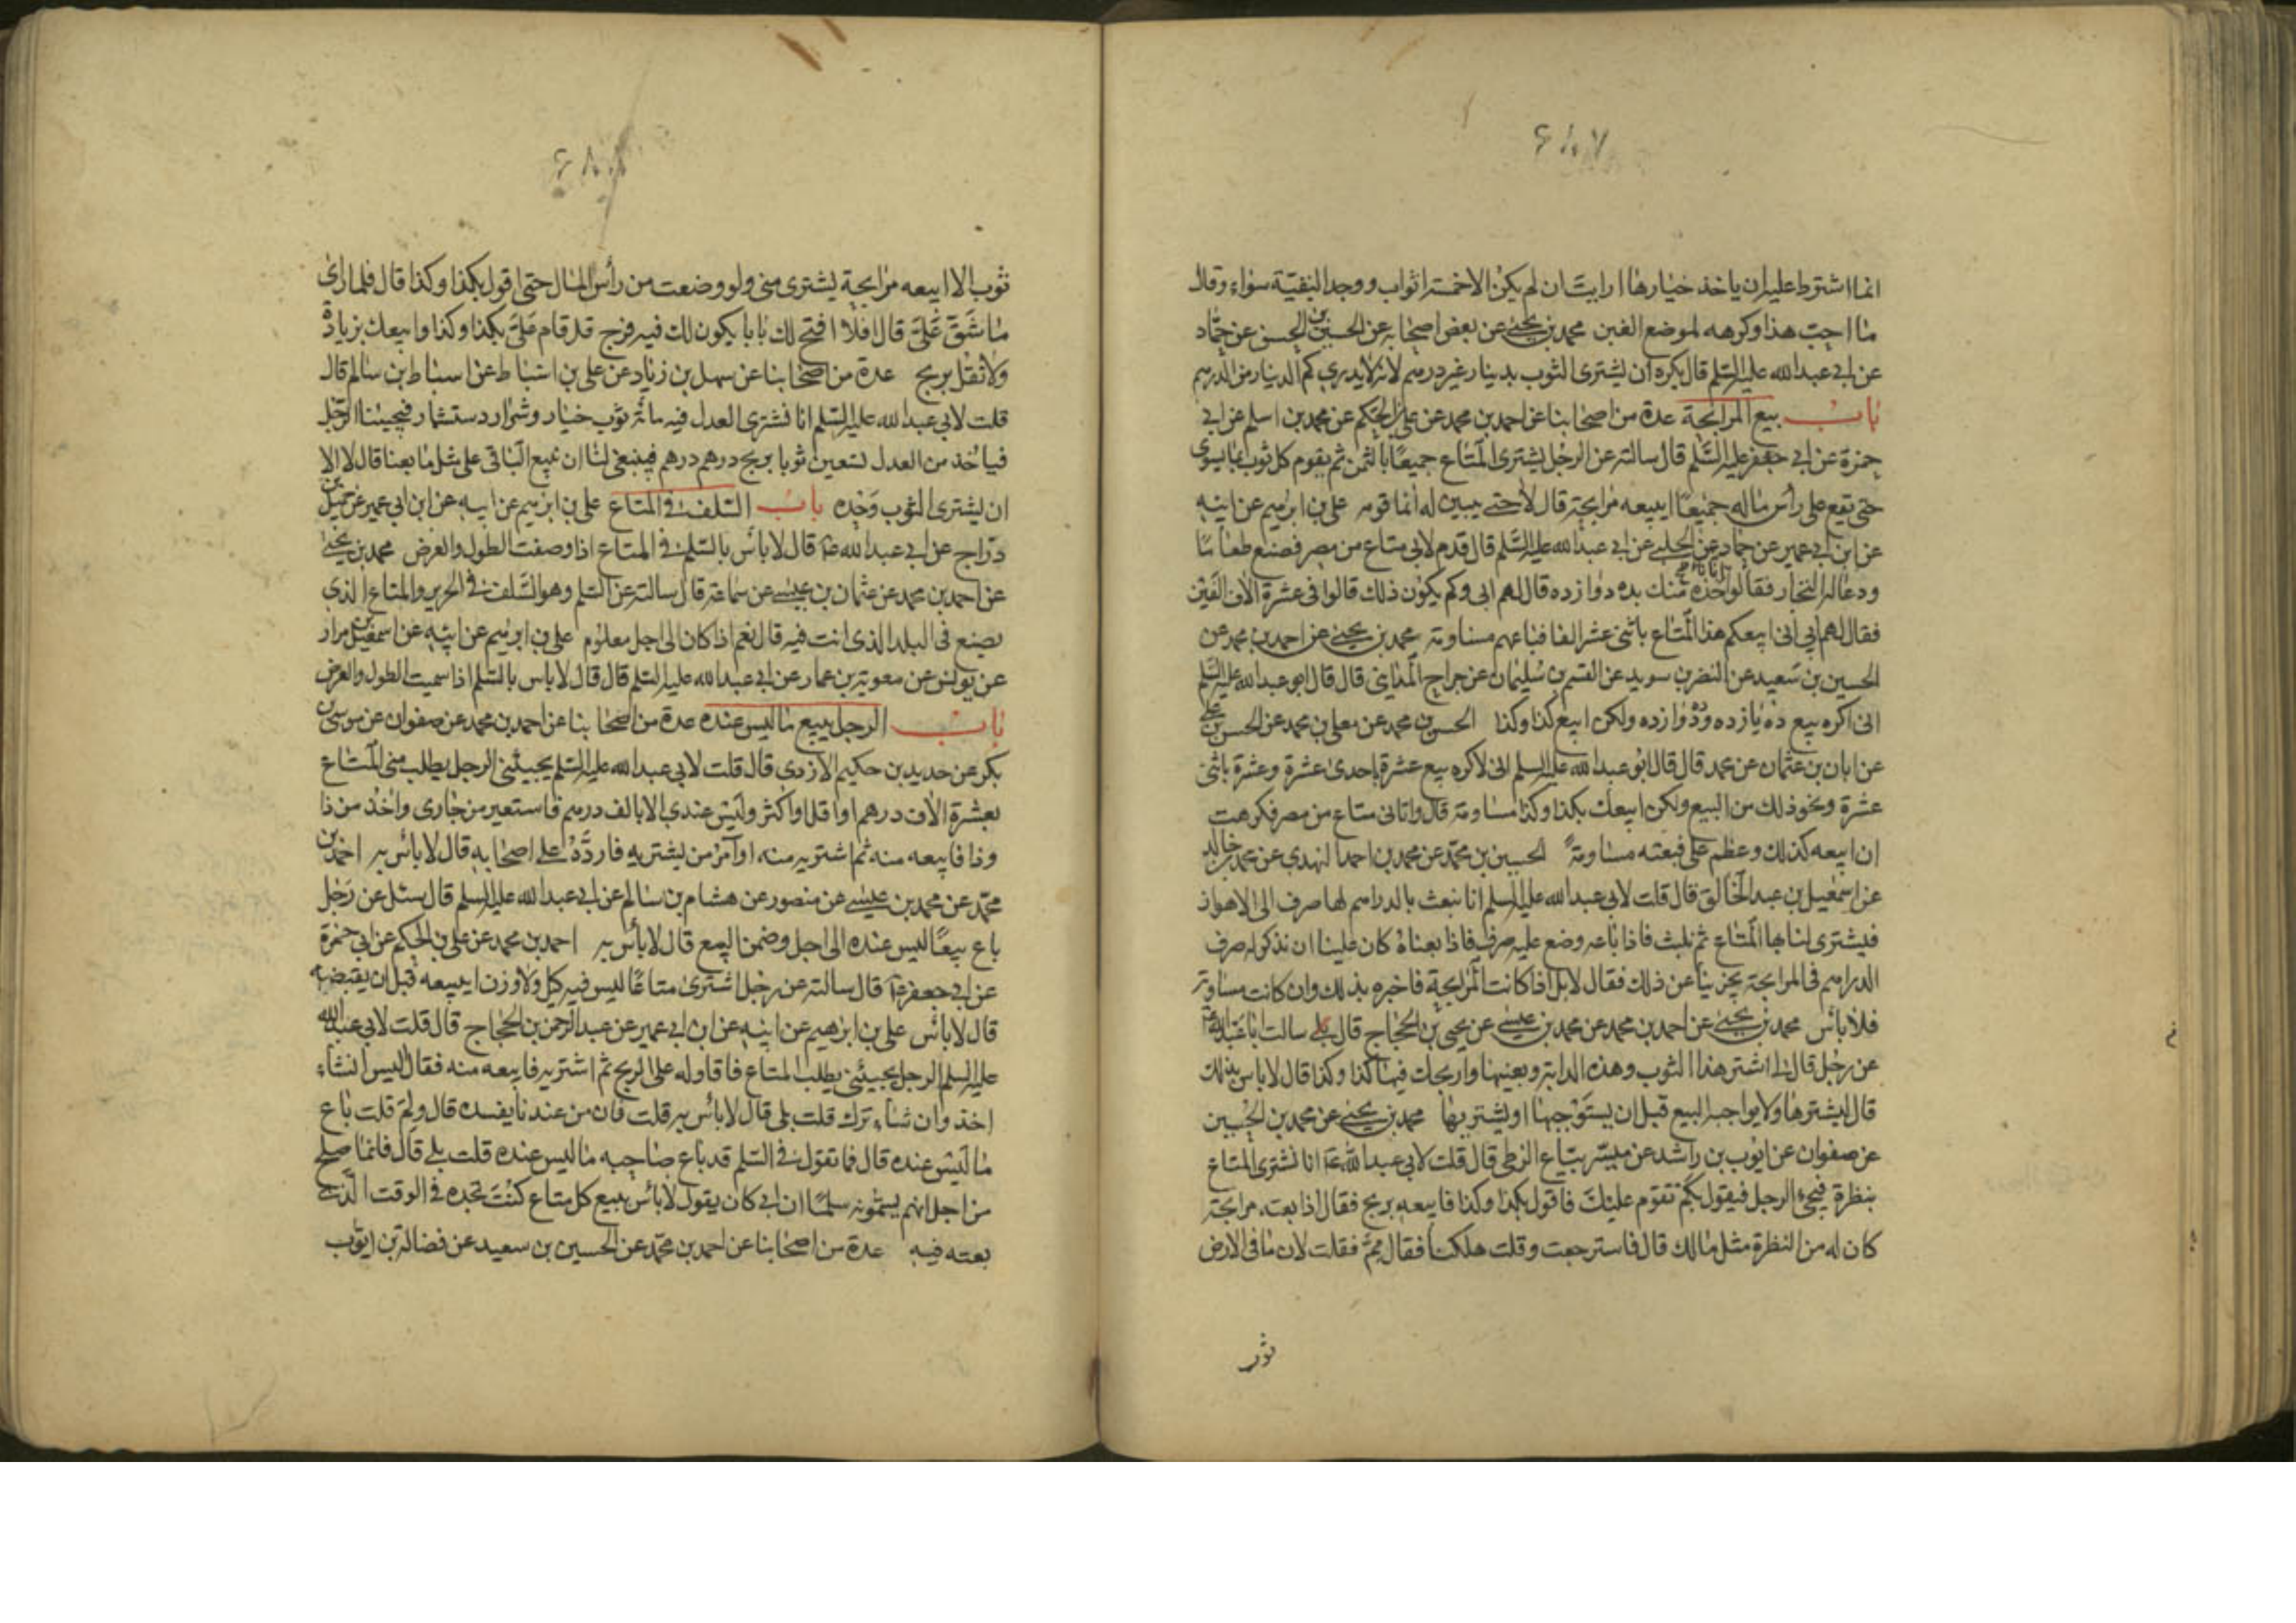 ۶۸۷
انما اشترط عليه ان ياخذ خيارها ارايت ان لم يكن الا خمسة اثواب ووجد البقية سواء وقال
ما احب هذا وكرهه لموضع الغبن محمد بن يحيى عن بعض اصحابه عن الحسين بن الحسن عن حماد
عن ابي عبدالله عليه السلم قال يكره ان يشترى الثوب بدينار غير درهم لانه لا يدرى كم الدينار من الدرهم
باب بيع المرابحة عدة من اصحابنا عن احمد بن محمد عن على بن الحكم عن محمد بن اسلم عن ابي
حمزة عن ابي جعفر عليه السلم قال سالته عن الرجل يشترى المتاع جميعًا بالثمن ثم يقوم كل ثوب بما يسوى
حتى يقع على رأس ماله جميعًا ايبيعه مرابحة قال لا حتى يبين له انما قومه على بن ابرهيم عن ابيه
عن ابن ابي عمير عن حماد عن الحلبى عن ابي عبدالله عليه السلم قال قدم لابي متاع من مصر فصنع طعامًا
ودعا له التجار فقالوا ناخذه منك بده دوازده قال لهم ابى وكم يكون ذلك قالوا فى عشرة الاف الفين
فقال لهم ابي انى ابيعكم هذا المتاع باثنى عشر الفا فباعهم مساومة محمد بن يحيى عن احمد بن محمد عن
الحسين بن سعيد عن النضر بن سويد عن القسم بن سليمان عن جراح المداينى قال قال ابو عبدالله عليه السلم
انى اكره بيع ده يازده وده دوازده ولكن ابيع كذا وكذا الحسين بن محمد عن معلى بن محمد عن الحسن بن على
عن ابان بن عثمان عن محمد قال قال ابو عبدالله عليه السلم انى لاكره بيع عشرة باحدى عشرة وعشرة باثنى
عشرة ونحو ذلك من البيع ولكن ابيعك بكذا وكذا مساومة قال واتانى متاع من مصر فكرهت
ان ابيعه كذلك وعظم على فبعته مساومة الحسين بن محمد عن محمد بن احمد النهدى عن محمد بن خالد
عن اسمعيل بن عبد الخالق قال قلت لابي عبدالله عليه السلم انا نبعث بالدراهم لها صرف الى الاهواز
فيشترى لنا بها المتاع ثم نلبث فاذا باعه وضع عليه صرف فاذا بعناه كان علينا ان نذكر له صرف
الدراهم فى المرابحة يجزينا عن ذلك فقال لا بل اذا كانت المرابحة فاخبره بذلك وان كانت مساومة
فلا باس محمد بن يحيى عن احمد بن محمد عن محمد بن عيسى عن يحيى بن الحجاج قال سالت ابا عبدالله ع
عن رجل قال لى اشتر هذا الثوب وهذه الدابة وبعنيها واربحك فيها كذا وكذا قال لا باس بذلك
قال ليشترها ولا يواجبه البيع قبل ان يستوجبها او يشتريها محمد بن يحيى عن محمد بن الحسين
عن صفوان عن ايوب بن راشد عن ميسر بياع الزطى قال قلت لابي عبدالله ع انا نشترى المتاع
بنظرة فيجئ الرجل فيقول بكم تقوم عليك فاقول بكذا وكذا فابيعه بربح فقال اذا بعته مرابحة
كان له من النظرة مثل مالك قال فاسترجعت وقلت هلكنا فقال مم فقلت لان ما فى الارض
ثوب
۶۸۸
ثوب الا ابيعه مرابحة يشترى منى ولو وضعت من رأس المال حتى اقول بكذا وكذا قال فلما راى
ما شق على قال افلا افتح لك بابا يكون لك فيه فرج قل قام على بكذا وكذا وابيعك بزيادة
ولا تقل بربح عدة من اصحابنا عن سهل بن زياد عن على بن اسباط عن اسباط بن سالم قال
قلت لابي عبدالله عليه السلم انا نشترى العدل فيه مائة ثوب خيار وشرار دستشمار فيجيئنا الرجل
فياخذ من العدل تسعين ثوبا بربح درهم درهم فينبغى لنا ان نبيع الباقى على مثل ما بعنا قال لا الا
ان يشترى الثوب وحده باب السلف فى المتاع على بن ابرهيم عن ابيه عن ابن ابي عمير عن جميل بن
دراج عن ابي عبدالله ع قال لا باس بالسلم فى المتاع اذا وصفت الطول والعرض محمد بن يحيى
عن احمد بن محمد عن عثمان بن عيسى عن سماعة قال سالته عن السلم وهو السلف فى الحرير والمتاع الذى
يصنع فى البلد الذى انت فيه قال نعم اذا كان الى اجل معلوم على بن ابرهيم عن ابيه عن اسمعيل بن مرار
عن يونس عن معوية بن عمار عن ابي عبدالله عليه السلم قال قال لا باس بالسلم اذا سميت الطول والعرض
باب الرجل يبيع ما ليس عنده عدة من اصحابنا عن احمد بن محمد عن صفوان عن موسى بن
بكر عن حديد بن حكيم الازدى قال قلت لابي عبدالله عليه السلم يجيئنى الرجل يطلب منى المتاع
بعشرة الاف درهم او اقل او اكثر وليس عندى الا بالف درهم فاستعير من جارى واخذ من ذا
وذا فابيعه منه ثم اشتريه منه او آمر من يشتريه فارده على اصحابه قال لا باس به احمد بن
محمد عن محمد بن عيسى عن منصور عن هشام بن سالم عن ابي عبدالله عليه السلم قال سئل عن رجل
باع بيعًا ليس عنده الى اجل وضمن البيع قال لا باس به احمد بن محمد عن على بن الحكم عن ابي حمزة
عن ابي جعفر ع قال سالته عن رجل اشترى متاعًا ليس فيه كيل ولا وزن ايبيعه قبل ان يقبضه
قال لا باس على بن ابرهيم عن ابيه عن ابن ابي عمير عن عبد الرحمن بن الحجاج قال قلت لابي عبدالله
عليه السلم الرجل يجيئنى يطلب المتاع فاقاوله على الربح ثم اشتريه فابيعه منه فقال اليس ان شاء
اخذ وان شاء ترك قلت بلى قال لا باس به قلت فان من عندنا يفسده قال ولم قلت باع
ما ليس عنده قال فما تقول فى السلم قد باع صاحبه ما ليس عنده قلت بلى قال فانما صلح
من اجل انهم يسمونه سلمًا ان ابي كان يقول لا باس ببيع كل متاع كنت تجده فى الوقت الذى
بعته فيه عدة من اصحابنا عن احمد بن محمد عن الحسين بن سعيد عن فضالة بن ايوب